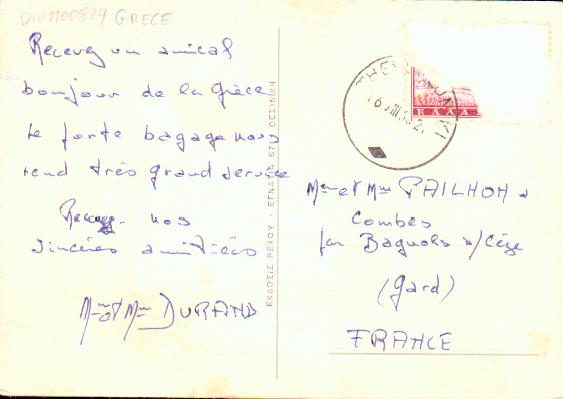 DIVM00829 GRECE
Recevez un amical
bonjour de la Grèce
Le porte bagage nous
rend très grand service
Recevez nos
sincères amitiés
Mme et Mm DURAND
ΕΚΔΟΣΙΣ ΡΕΧΟΥ - ΕΓΝΑΤΙΑ 67 ΘΕΣ/ΝΙΚΗ
ΕΛΛΑΣ
Mme et Mm PAILHON a
Combes
par Bagnols s/Cèze
(Gard)
FRANCE